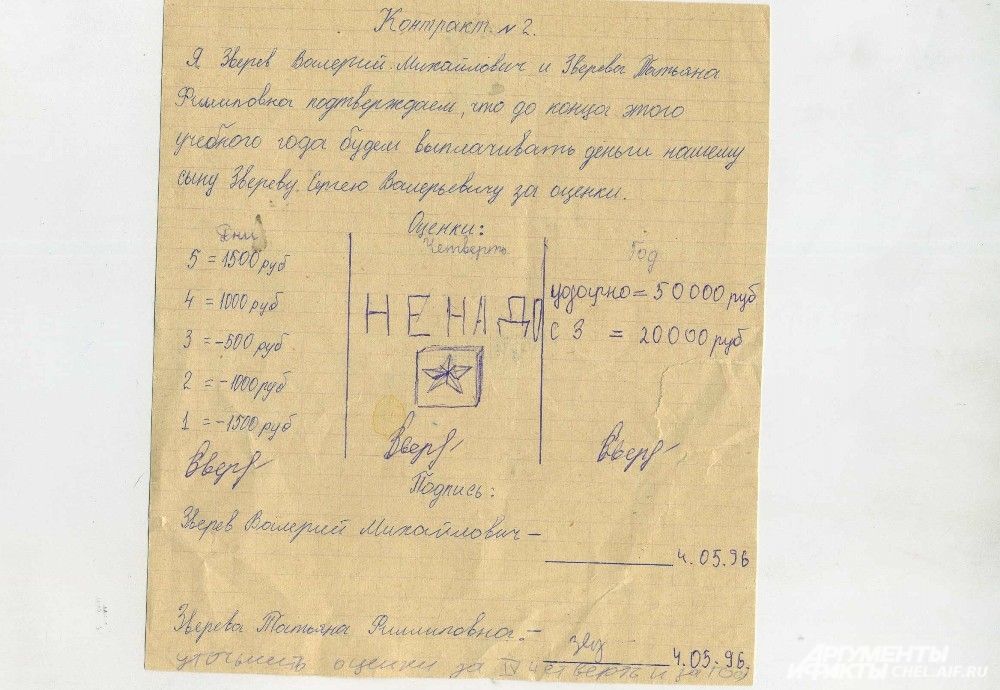 Контракт. N 2.
Я Зверев Валерий Михайлович и Зверева Татьяна
Филлиповна подтверждаем, что до конца этого
учебного года будем выплачивать деньги нашему
сыну Звереву. Сергею Валерьевичу за оценки.
Оценки:
Дни
5 = 1500 руб
4 = 1000 руб
3 = -500 руб
2 = -1000 руб
1 = -1500 руб
Четверть
НЕ НАДО
Год
ударно = 50000 руб
с 3 = 20000 руб
Подпись:
Зверев Валерий Михайлович –
4.05.96
Зверева Татьяна Филлиповна. –
4.05.96.
уточнить оценки за IV четверть и за год
АРГУМЕНТЫ
И ФАКТЫ CHEL.AIF.RU